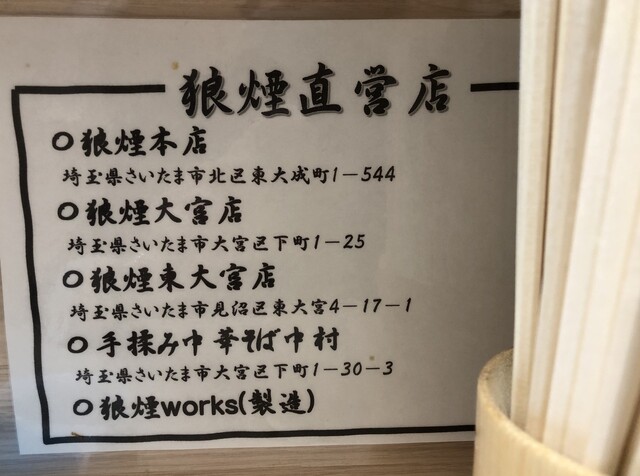 狼煙直営店
○狼煙本店
埼玉県さいたま市北区東大成町1-544
○狼煙大宮店
埼玉県さいたま市大宮区下町1-25
○狼煙東大宮店
埼玉県さいたま市見沼区東大宮4-17-1
○手揉み中華そば中村
埼玉県さいたま市大宮区下町1-30-3
○狼煙works(製造)